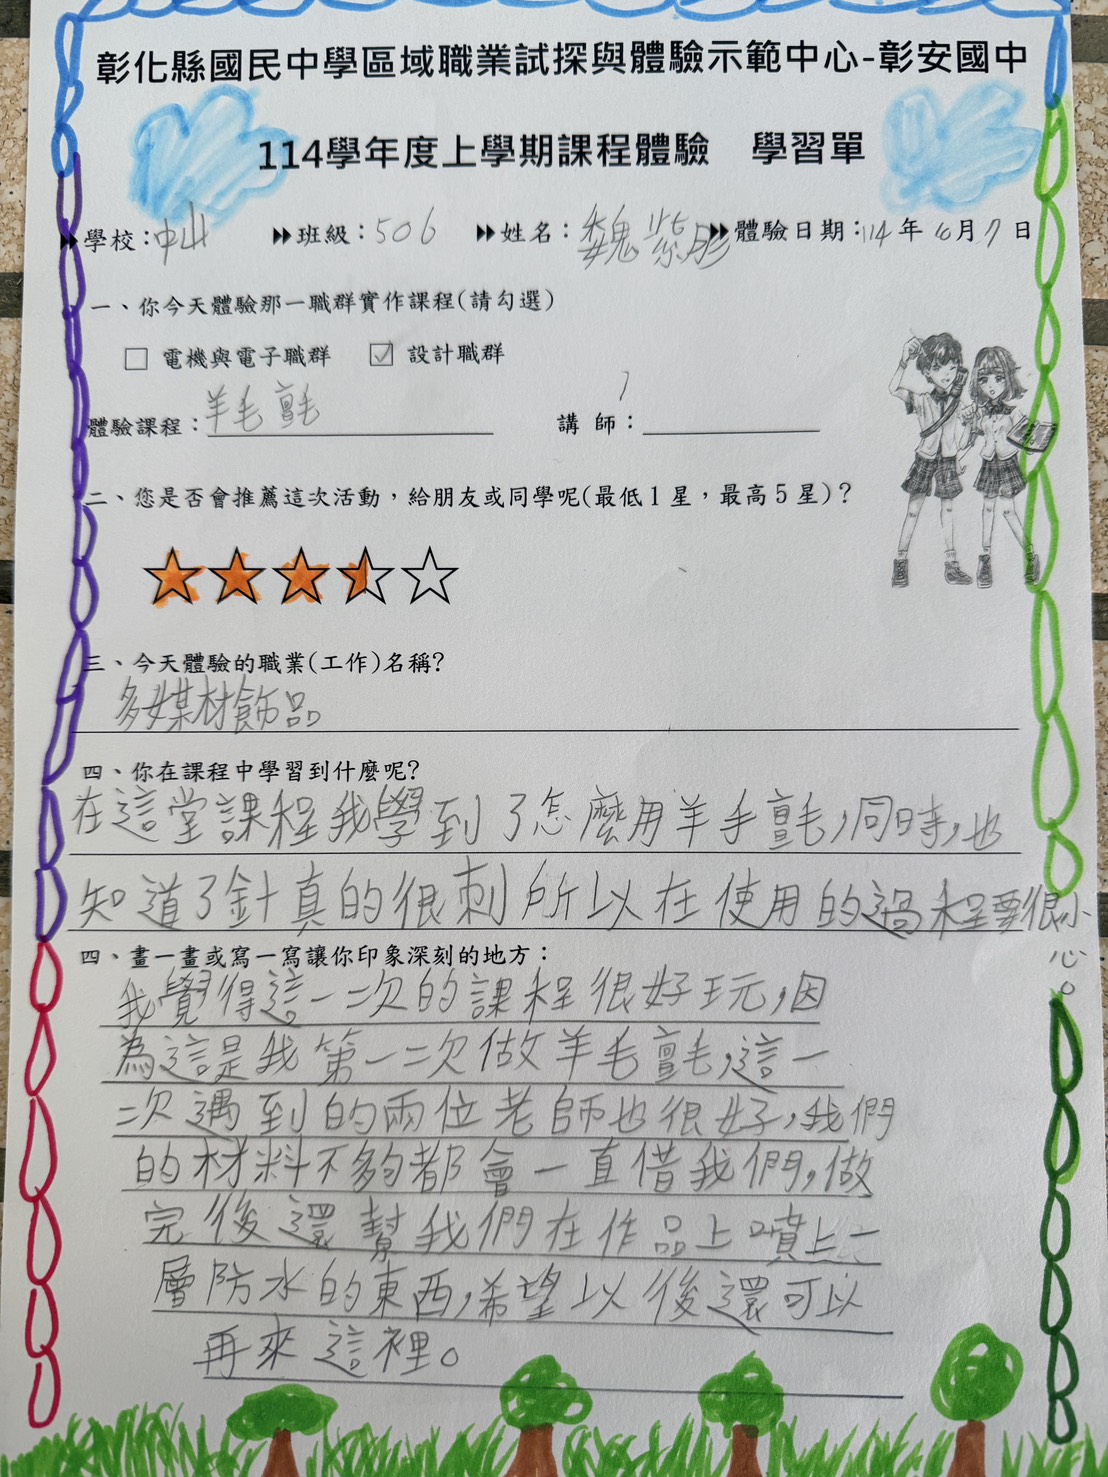 彰化縣國民中學區域職業試探與體驗示範中心-彰安國中
114學年度上學期課程體驗 學習單
學校：中山 班級：506 姓名：魏紫彤 體驗日期：114年10月7日
一、你今天體驗那一職群實作課程(請勾選)
☐ 電機與電子職群 ☑ 設計職群
體驗課程：羊毛氈 講 師：
二、您是否會推薦這次活動，給朋友或同學呢(最低1星，最高5星)？
三、今天體驗的職業(工作)名稱?
多媒材飾品
四、你在課程中學習到什麼呢?
在這堂課程我學到了怎麼用羊手氈，同時，也
知道了針真的很刺所以在使用的過程要很小心。
四、畫一畫或寫一寫讓你印象深刻的地方：
我覺得這一次的課程很好玩，因
為這是我第一次做羊毛氈，這一
次遇到的兩位老師也很好，我們
的材料不夠都會一直借我們，做
完後還幫我們在作品上噴上一
層防水的東西，希望以後還可以
再來這裡。